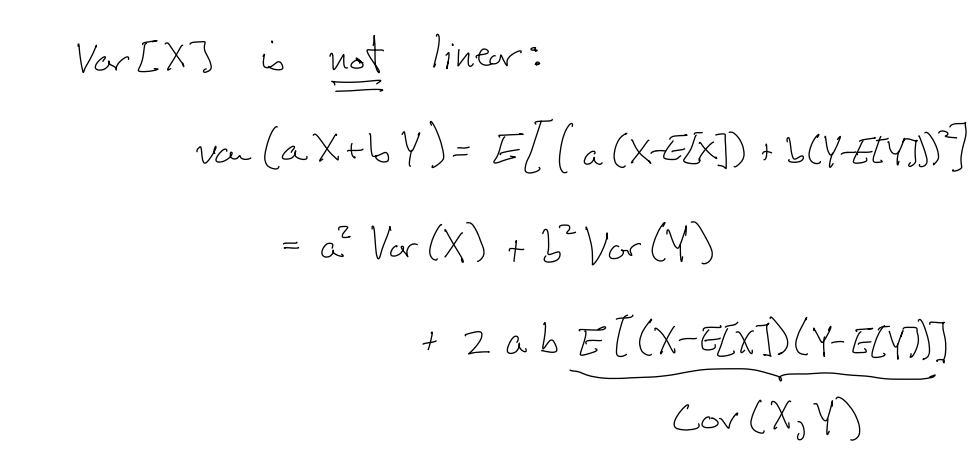 Var[X] is not linear:
var(aX+bY) = E[(a(X-E[X]) + b(Y-E[Y]))²]
= a² Var(X) + b² Var(Y)
+ 2ab E[(X-E[X])(Y-E[Y])]
Cov(X,Y)